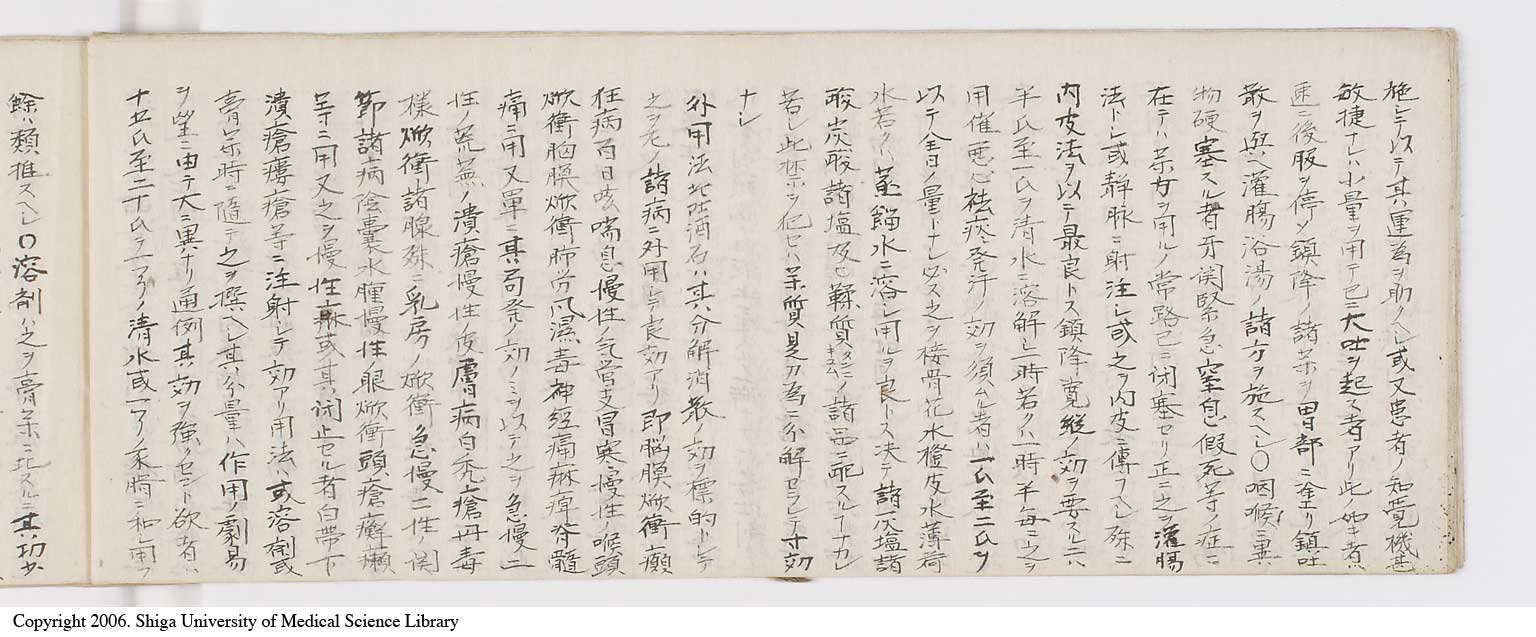 施シテ以テ其運為ヲ助クヘシ或又患者ノ知覚機甚
敏捷ナレハ小量ヲ用テ已ニ大吐ヲ起ス者アリ此如キ者ハ
速ニ後服ヲ停メ鎮降ノ諸薬ヲ胃部ニ塗リ鎮吐
散ヲ與ヘ灌腸浴湯ノ諸方ヲ施スヘシ〇咽喉ニ異
物硬塞スル者牙関緊急窒息假死等ノ症ニ
在テハ薬方ヲ用ルノ常路已ニ閉塞セリ正ニ之ヲ灌腸
法トシ或静脉ニ射注シ或之ヲ内皮ニ傳フヘシ殊ニ
内皮法ヲ以テ最良トス鎮降寛縦ノ効ヲ要スルニハ
半氏至一氏ヲ清水ニ溶解シ一時若クハ一時半毎ニ之ヲ
用催悪心祛痰発汗ノ効ヲ須ムル者ハ一氏至二氏ヲ
以テ全日ノ量トナシ必ス之ヲ接骨花水橙皮水薄荷
水若クハ蒸餾水ニ溶シ用ルヲ良トス决テ諸灰塩諸
酸炭酸諸塩及ヒ鞣質タンニキスムノ諸品ニ配スルーナカレ
若シ此禁ヲ犯セハ薬質是カ為ニ分解セラレテ寸効
ナシ
外用法此吐酒石ハ其分解消散ノ効ヲ標的トシテ
之ヲ左ノ諸病ニ外用シテ良効アリ即脳膜焮衝癲
狂病百日咳喘息慢性ノ気管支冒寒慢性ノ喉頭
焮衝胸膜焮衝肺労風湿毒神経痛麻痺脊髄
痛ニ用又單ニ其局発ノ効ノミヲ以テ之ヲ急慢二
性ノ荒蕪ノ潰瘡慢性皮膚病白禿瘡丹毒
様焮衝諸腺殊ニ乳房ノ焮衝急慢二性ノ関
節諸病陰嚢水腫慢性ノ眼焮衝頭瘡癬癩
等ニ用又之ヲ慢性痳或其閉止セル者白帯下
潰瘡瘻瘡等ニ注射シテ効アリ用法ハ或溶剤或
膏薬時ニ随テ之ヲ撰ヘシ其分量ハ作用ノ劇易
ヲ望ニ由テ大ニ異ナリ通例其効ヲ強クセント欲者ハ
十五氏至二十氏ヲ一弓ノ清水或一弓ノ豕脂ニ和シ用フ
餘ハ類推スヘシ〇溶剤ハ之ヲ膏薬ニ比スルニ其功少
Copyright 2006. Shiga University of Medical Science Library